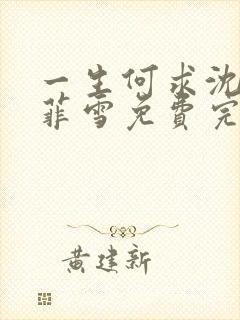 一生何求沈
菲雪免费完
黄建新